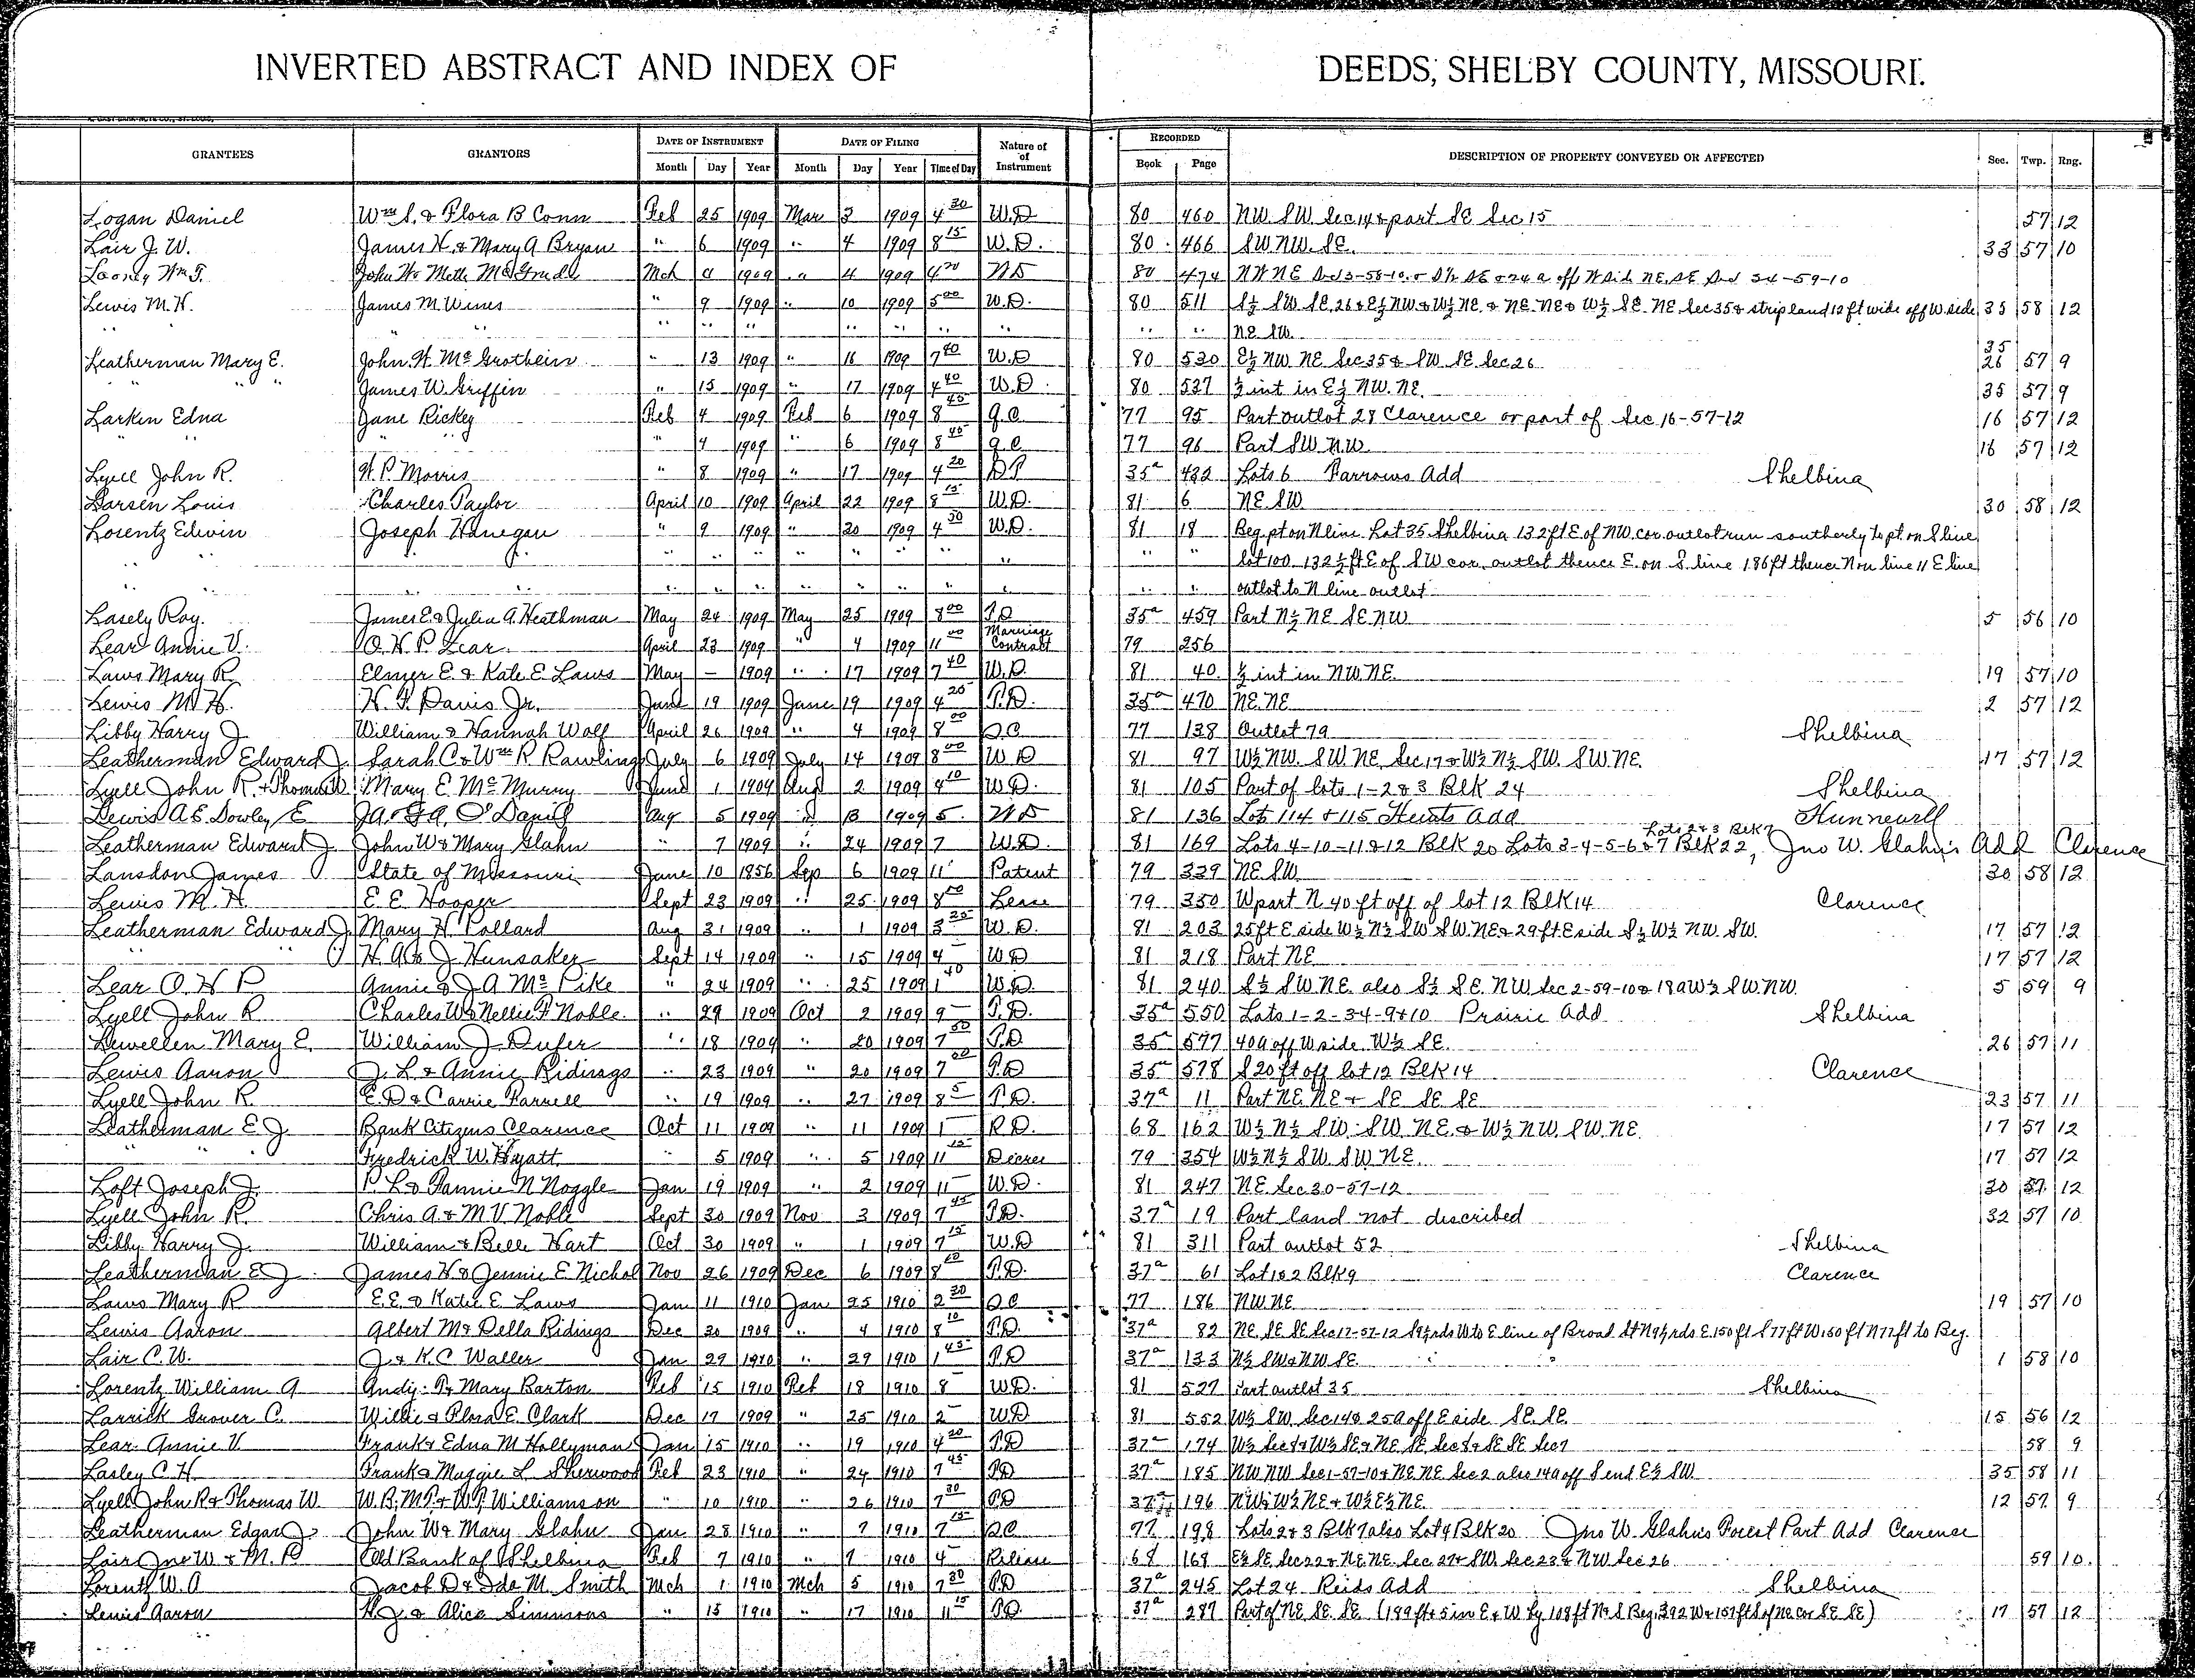 INVERTED ABSTRACT AND INDEX OF DEEDS, SHELBY COUNTY, MISSOURI.
GRANTEES GRANTORS DATE OF INSTRUMENT DATE OF FILING Nature of Instrument RECORDED DESCRIPTION OF PROPERTY CONVEYED OR AFFECTED Sec. Twp. Rng.
Month Day Year Month Day Year Time of Day Book Page
Logan Daniel Wm S. & Flora B Conn Feb 25 1909 Mar 3 1909 4 30 W.D 80 460 NW SW Sec 14 & part SE Sec 15 57 12
Lair J. W. James H. & Mary A Bryan " 6 1909 " 4 1909 8 15 W.D. 80 466 SW NW. SE. 33 57 10
Looney Wm T. Mch 4 1909 " 4 1909 W D 80 474 NW NE Sec 3-58-10 & S½ SE & 24 a off W Side NE, SE Sec 34-59-10
Lewis M. H. James M Wines " 9 1909 " 10 1909 5 00 W.D. 80 511 S½ SW SE. 26 & E½ NW & W½ NE. & NE. NE & W½ SE. NE Sec 35 & strip land 12 ft wide off W side 35 58 12
" " " " " " " " " " " NE SW.
Leatherman Mary E. John H. McGrothein " 13 1909 " 16 1909 7 40 W.D 80 530 E½ NW NE Sec 35 & SW SE Sec 26 35 26 57 9
" " " James W. Griffin " 15 1909 " 17 1909 4 40 W.D. 80 537 ½ int in E½ NW. NE. 35 57 9
Larken Edna Jane Rickey Feb 4 1909 Feb 6 1909 8 45 Q.C 77 95 Part outlot 28 Clarence or part of Sec 16-57-12 16 57 12
" " " " " 4 1909 " 6 1909 8 45 Q.C 77 96 Part SW NW. 16 57 12
Lyell John R. H. P. Morris " 8 1909 " 17 1909 4 20 DT 35a 432 Lots 6 Farrows Add Shelbina
Larsen Louis Charles Taylor April 10 1909 April 22 1909 8 15 W.D. 81 6 NE SW. 30 58 12
Lorentz Edwin Joseph Hanegan " 9 1909 " 20 1909 4 30 W.D. 81 18 Beg pt on N line Lot 35 Shelbina 132 ft E of NW cor outlot run southerly to pt on S line
" " " " " " " " " " lot 100 132½ ft E of SW cor. outlot thence E. on S. line 186 ft thence N on line 11 E line
" " " " " " " " " " outlot to N line outlot
Lasely Roy. James E. & Julia A. Heathman May 24 1909 May 25 1909 8 00 T.D 35a 459 Part N½ NE SE NW 5 56 10
Lear Annie V. O. H. P. Lear. April 23 1909 " 4 1909 11 00 Marriage Contract 79 256
Laws Mary R Elmer E. & Kate E Laws May – 1909 " 17 1909 7 40 W.D. 81 40 ½ int in NW NE. 19 57 10
Lewis M. H. H. F. Davis Jr. June 19 1909 June 19 1909 4 25 T.D. 35a 470 NE. NE 2 57 12
Libby Harry J William & Hannah Wolf April 26 1909 " 4 1909 8 00 QC 77 138 Outlot 79 Shelbina
Leatherman Edward J. Sarah C & Wm R Rawlings July 6 1909 July 14 1909 8 00 W D 81 97 W½ NW. SW NE. Sec 17 & W½ N½ SW. SW NE. 17 57 12
Lyell John R. & Thomas W Mary E. McMurry June 1 1909 Aug 2 1909 4 10 W.D. 81 105 Part of lots 1-2 & 3 Blk 24 Shelbina
Lewis A E. Dowley E J.A. & G.A. O'Daniel Aug 5 1909 " 13 1909 5. W D 81 136 Lots 114 & 115 Hunts Add Hunnewell
Leatherman Edward J John W & Mary Glahn " 7 1909 " 24 1909 7 W.D. 81 169 Lots 4-10-11 & 12 Blk 20 Lots 3-4-5-6 & 7 Blk 22, Lots 2 & 3 Blk 7 Jno W. Glahn's Add Clarence
Lansdon James State of Missouri June 10 1856 Sep 6 1909 11 Patent 79 339 NE. SW. 30 58 12
Lewis M. H. E. E. Hooper Sept 23 1909 " 25 1909 8 50 Lease 79 350 W part N 40 ft off of lot 12 Blk 14 Clarence
Leatherman Edward J. Mary H. Pollard Aug 31 1909 " 1 1909 3 25 W.D. 81 203 25 ft E side W½ N½ SW SW. NE & 29 ft E side S½ W½ NW. SW. 17 57 12
" " H. A & J. Hunsaker Sept 14 1909 " 15 1909 4 W D 81 218 Part NE 17 57 12
Lear O. H P Annie & J A McPike " 24 1909 " 25 1909 1 40 W.D. 81 240 S½ SW NE. also S½ SE. NW Sec 2-59-10 & 18 a W½ SW. NW. 5 59 9
Lyell John R Charles W & Nellie F Noble. " 29 1909 Oct 2 1909 9 T.D. 35a 550 Lots 1-2-34-9 & 10 Prairie Add Shelbina
Lewellen Mary E. William J. Dufer " 18 1909 " 20 1909 7 50 T.D 35a 577 40 a off W side W½ SE. 26 57 11
Lewis Aaron J. L & Annie Ridings " 23 1909 " 20 1909 7 T.D 35a 578 S 20 ft off lot 12 Blk 14 Clarence
Lyell John R. E. D & Carrie Farrell " 19 1909 " 27 1909 8 5 T.D. 37a 11 Part NE. NE & SE SE SE 23 57 11
Leatherman E J. Bank Citizens Clarence Oct 11 1909 " 11 1909 1 R.D. 68 162 W½ N½ SW. SW. NE. & W½ NW. SW. NE. 17 57 12
" " Fredrick W. Hyatt " 5 1909 " 5 1909 11 15 Decree 79 354 W½ N½ SW. SW NE. 17 57 12
Loft Joseph J. P. L. & Fannie N Noggle Jan 19 1909 " 2 1909 11 W.D. 81 247 NE. Sec 30-57-12 30 57 12
Lyell John R. Chris A & M V. Noble Sept 30 1909 Nov 3 1909 7 45 T.D. 37a 19 Part land not described 32 57 10
Libby Harry J. William & Belle Hart Oct 30 1909 " 1 1909 7 15 W.D 81 311 Part outlot 52 Shelbina
Leatherman E J. James H & Jennie E. Nichol Nov 26 1909 Dec 6 1909 8 T.D. 37a 61 Lot 1 & 2 Blk 9 Clarence
Laws Mary R E. E. & Katie E Laws Jan 11 1910 Jan 25 1910 2 30 QC 77 186 NW NE 19 57 10
Lewis Aaron Albert M & Della Ridings Dec 30 1909 " 4 1910 8 10 T.D. 37a 82 NE. SE SE Sec 17-57-12 S 9½ rds W to E line of Broad St N 9½ rds E. 150 ft S 77 ft W 150 ft N 77 ft to Beg.
Lair C. W. J & K. C Waller Jan 29 1910 " 29 1910 1 45 T.D 37a 133 N½ SW & NW SE. 1 58 10
Lorentz William A Andy. P & Mary Barton Feb 15 1910 Feb 18 1910 8 W.D. 81 527 Part outlot 35 Shelbina
Larrick Grover C. Willie & Flora E. Clark Dec 17 1909 " 25 1910 2 W.D 81 552 W½ SW Sec 14 & 25 a off E side SE. SE. 15 56 12
Lear Annie V. Frank & Edna M Hollyman Jan 15 1910 " 19 1910 4 20 T.D 37a 174 W½ Sec 8 & W½ SE & NE SE Sec 8 & SE SE Sec 7 58 9
Lasley C. H. Frank & Maggie L Sherwood Feb 23 1910 " 24 1910 7 45 T.D 37a 185 NW NW Sec 1-57-10 & NE NE Sec 2 also 14 a off S end E½ SW 35 58 11
Lyell John R & Thomas W W. B. M. P. & W. P. Williamson " 10 1910 " 26 1910 7 30 T.D 37a 196 NW & W½ NE & W½ E½ NE 12 57 9
Leatherman Edgar J. John W & Mary Glahn Jan 28 1910 " 7 1910 7 15 QC 77 198 Lots 2 & 3 Blk 7 also Lot 9 Blk 20 Jno W. Glahns Forest Part Add Clarence
Lair Jno W & M. P Old Bank of Shelbina Feb 7 1910 " 7 1910 4 Release 68 169 E½ SE Sec 22 & NE. NE. Sec 27 & SW. Sec 23 & NW Sec 26 59 10
Lorentz W. A Jacob D & Ida M. Smith Mch 1 1910 Mch 5 1910 7 30 T.D 37a 245 Lot 24 Reids Add Shelbina
Lewis Aaron H. J. & Alice Simmons " 15 1910 " 17 1910 11 15 T.D. 37a 287 Part of NE. SE. SE. (199 ft & 5 in E & W by 108 ft N & S Beg. 392 W & 157 ft S of NE cor SE. SE) 17 57 12